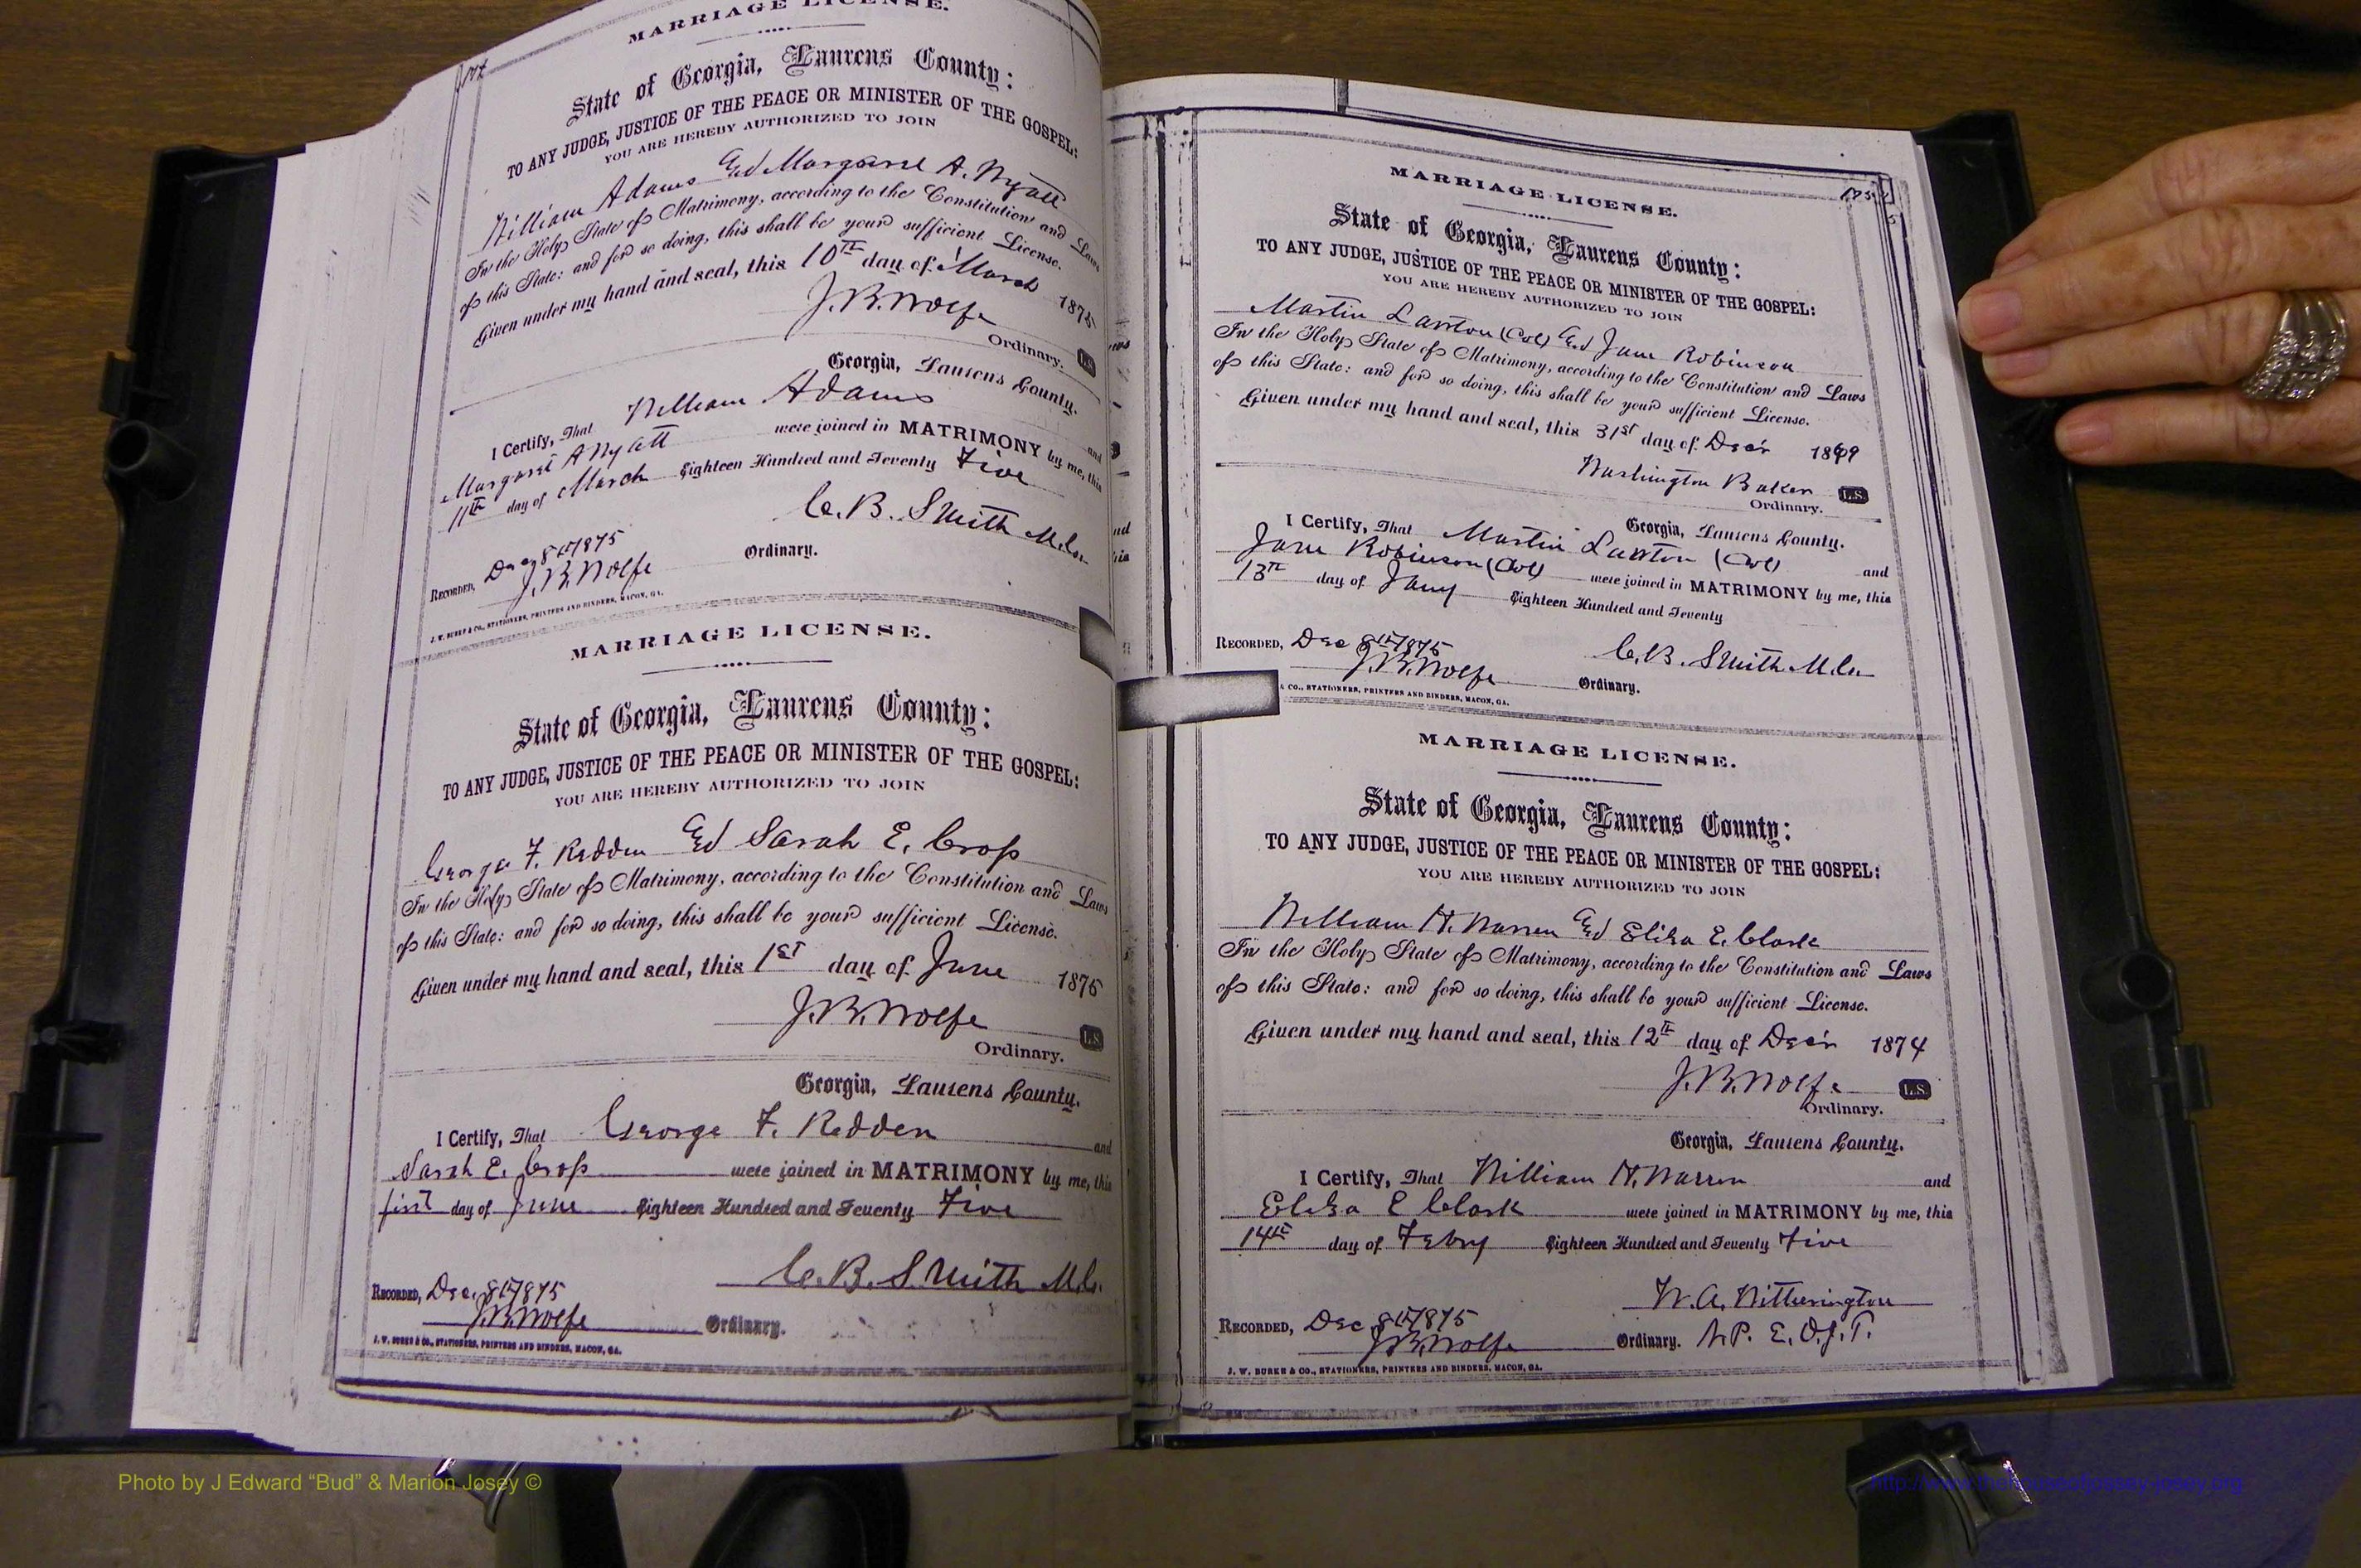 MARRIAGE LICENSE.
State of Georgia, Laurens County:
TO ANY JUDGE, JUSTICE OF THE PEACE OR MINISTER OF THE GOSPEL:
YOU ARE HEREBY AUTHORIZED TO JOIN
William Adams And Margaret A. Wyatt
In the Holy State of Matrimony, according to the Constitution and Laws
of this State: and for so doing, this shall be your sufficient License.
Given under my hand and seal, this 10th day of March 1875
J. B. Wolfe
Ordinary. L.S.
Georgia, Laurens County.
I Certify, That William Adams and
Margaret A Wyatt were joined in MATRIMONY by me, this
11th day of March Eighteen Hundred and Seventy Five
C. B. Smith M.G.
Recorded, Dec 8th 1875
J. B. Wolfe Ordinary.
J. W. BURKE & CO., STATIONERS, PRINTERS AND BINDERS, MACON, GA.
MARRIAGE LICENSE.
State of Georgia, Laurens County:
TO ANY JUDGE, JUSTICE OF THE PEACE OR MINISTER OF THE GOSPEL:
YOU ARE HEREBY AUTHORIZED TO JOIN
George F. Redden And Sarah E. Cross
In the Holy State of Matrimony, according to the Constitution and Laws
of this State: and for so doing, this shall be your sufficient License.
Given under my hand and seal, this 1st day of June 1875
J. B. Wolfe
L.S.
Ordinary.
Georgia, Laurens County.
I Certify, That George F. Redden and
Sarah E. Cross were joined in MATRIMONY by me, this
first day of June Eighteen Hundred and Seventy Five
C. B. Smith M.G.
Recorded, Dec. 8th 1875
J. B. Wolfe Ordinary.
J. W. BURKE & CO., STATIONERS, PRINTERS AND BINDERS, MACON, GA.
MARRIAGE LICENSE.
State of Georgia, Laurens County:
TO ANY JUDGE, JUSTICE OF THE PEACE OR MINISTER OF THE GOSPEL:
YOU ARE HEREBY AUTHORIZED TO JOIN
Martin Lawton (Col) And Jane Robinson
In the Holy State of Matrimony, according to the Constitution and Laws
of this State: and for so doing, this shall be your sufficient License.
Given under my hand and seal, this 31st day of Decr 1869
Washington Baker L.S.
Ordinary.
Georgia, Laurens County.
I Certify, That Martin Lawton (Col) and
Jane Robinson (Col) were joined in MATRIMONY by me, this
13th day of Jany Eighteen Hundred and Seventy
C. B. Smith M.G.
Recorded, Dec 8th 1875
J. B. Wolfe Ordinary.
& CO., STATIONERS, PRINTERS AND BINDERS, MACON, GA.
MARRIAGE LICENSE.
State of Georgia, Laurens County:
TO ANY JUDGE, JUSTICE OF THE PEACE OR MINISTER OF THE GOSPEL:
YOU ARE HEREBY AUTHORIZED TO JOIN
William H. Warren And Eliza E. Clark
In the Holy State of Matrimony, according to the Constitution and Laws
of this State: and for so doing, this shall be your sufficient License.
Given under my hand and seal, this 12th day of Decr 1874
J. B. Wolfe L.S.
Ordinary.
Georgia, Laurens County.
I Certify, That William H. Warren and
Eliza E Clark were joined in MATRIMONY by me, this
14th day of Feby Eighteen Hundred and Seventy Five
W. A. Witherington
Recorded, Dec 8th 1875
J. B. Wolfe Ordinary. N.P. E.O.J.P.
J. W. BURKE & CO., STATIONERS, PRINTERS AND BINDERS, MACON, GA.
Photo by J Edward “Bud” & Marion Josey ©
http://www.thehouseofjossey-josey.org